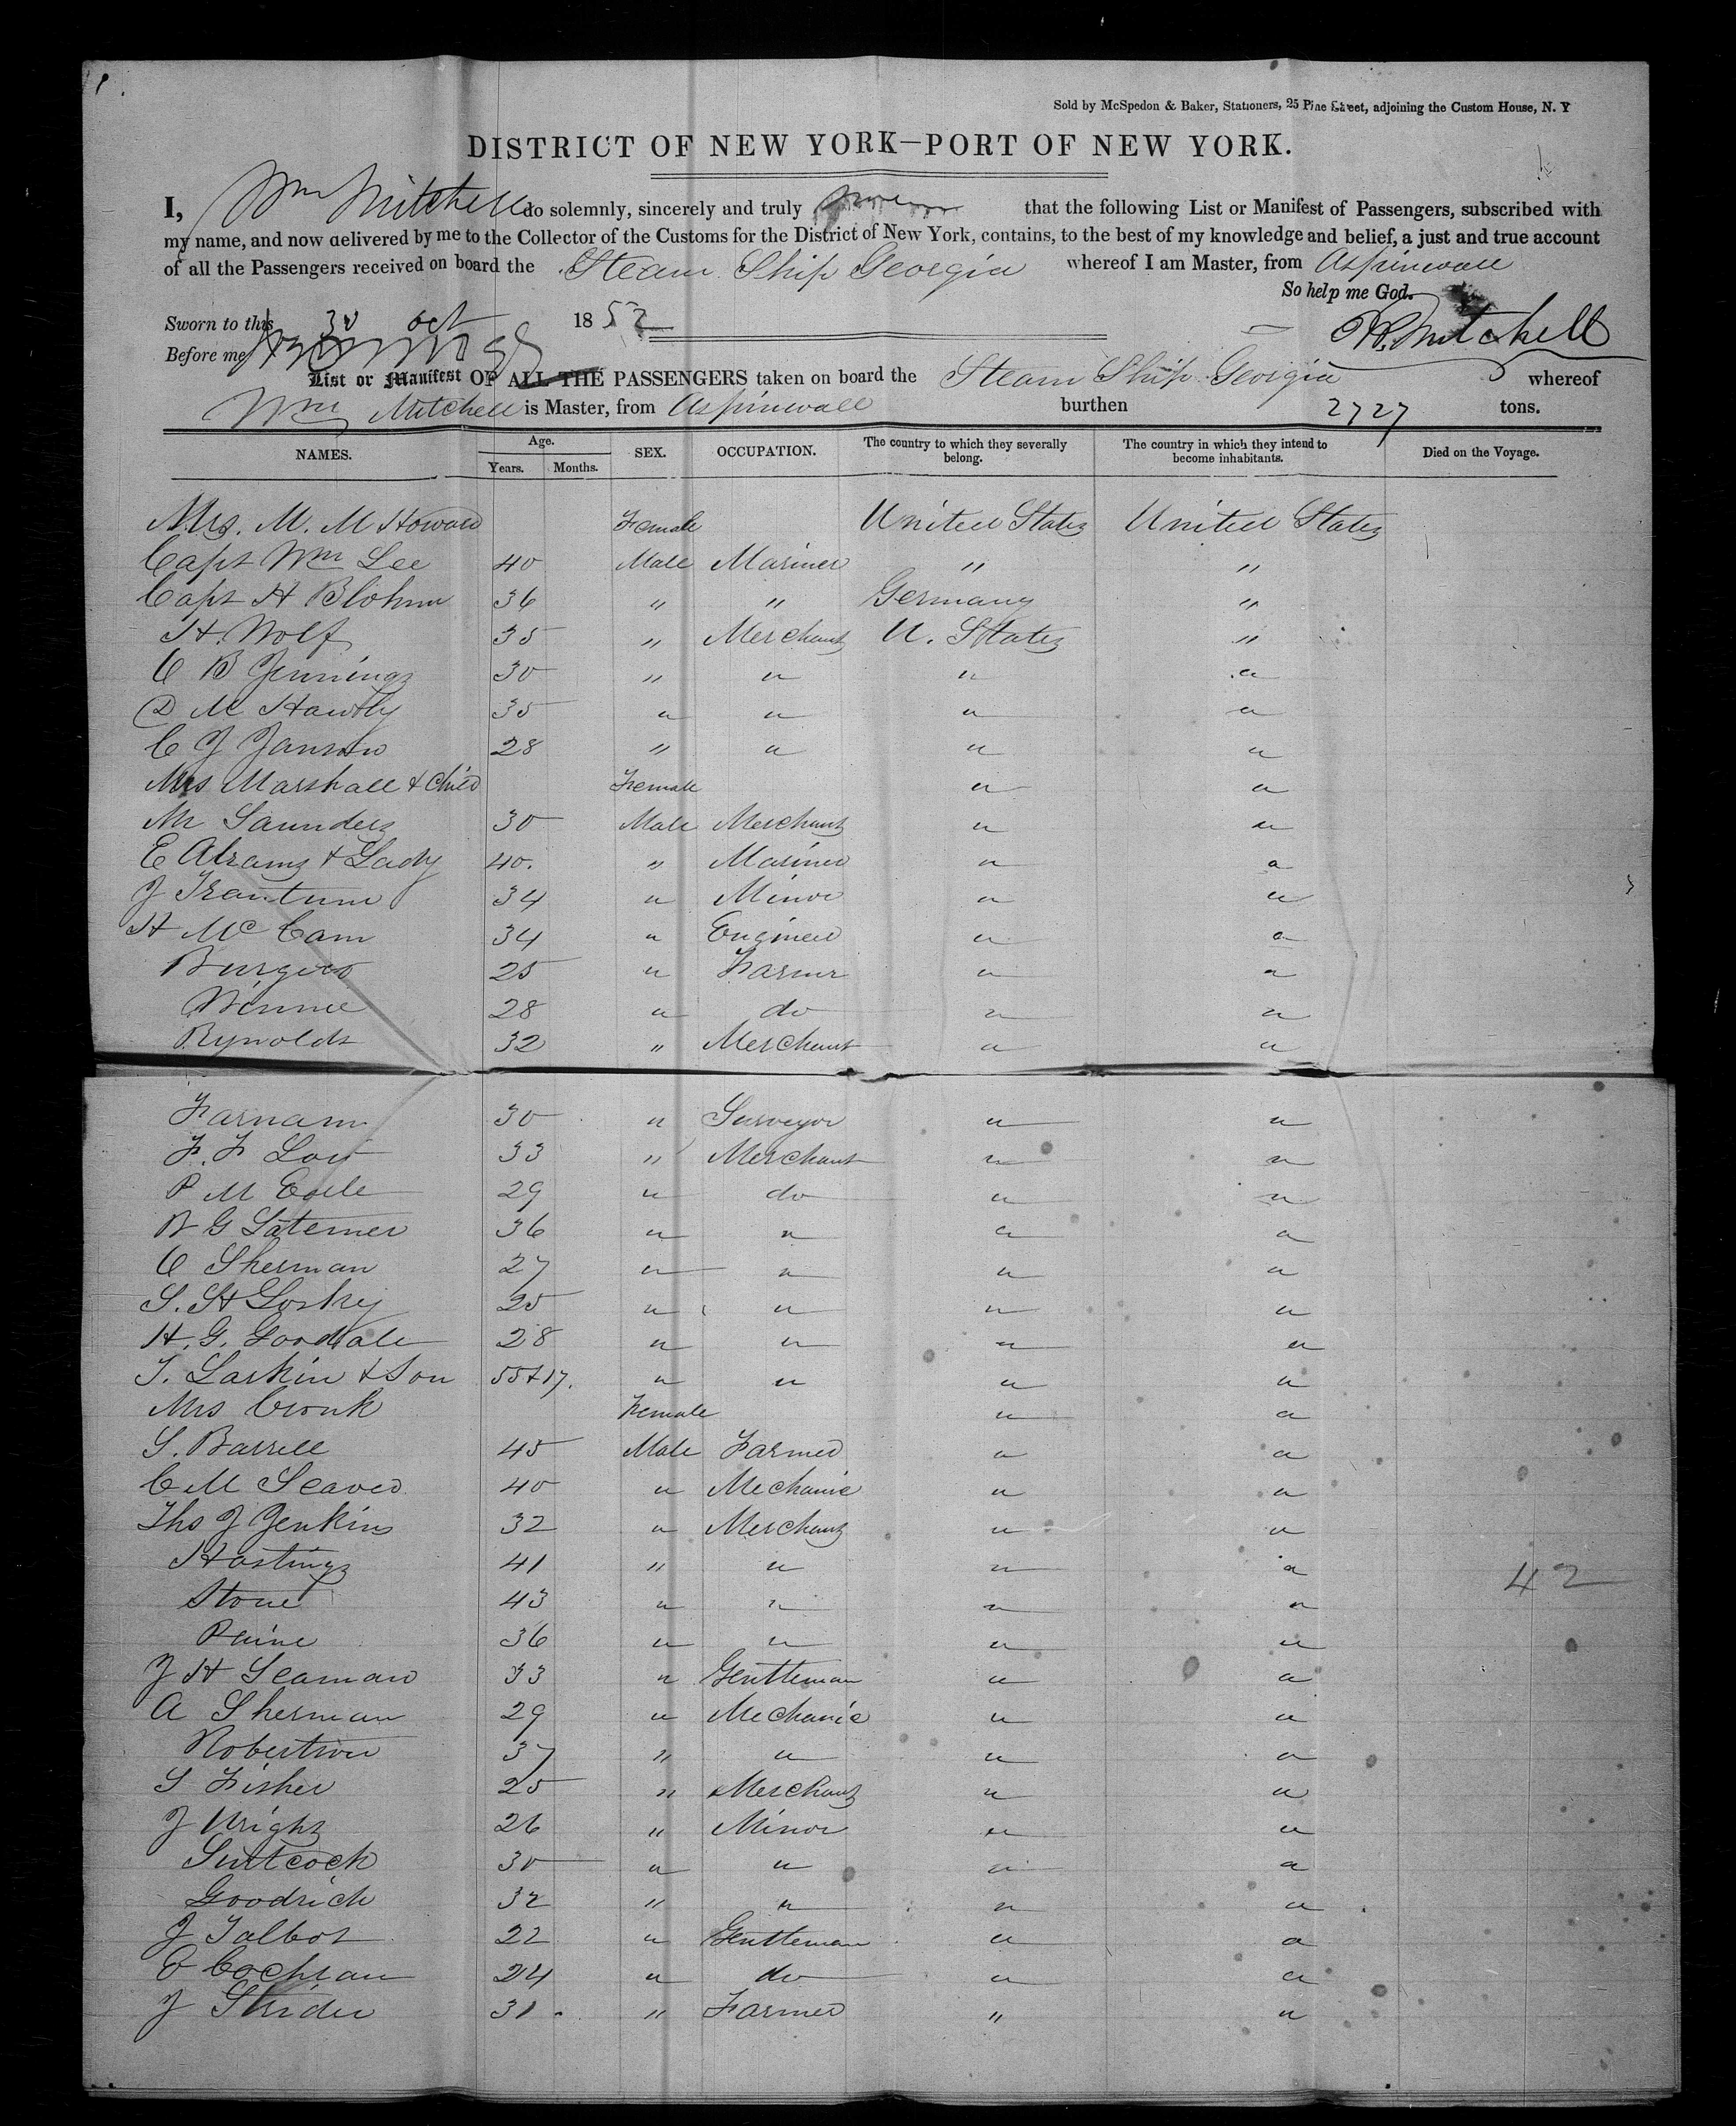 1.
Sold by McSpedon & Baker, Stationers, 25 Pine Street, adjoining the Custom House, N. Y
DISTRICT OF NEW YORK—PORT OF NEW YORK.
I, Wm Mitchell do solemnly, sincerely and truly swear that the following List or Manifest of Passengers, subscribed with
my name, and now delivered by me to the Collector of the Customs for the District of New York, contains, to the best of my knowledge and belief, a just and true account
of all the Passengers received on board the Steam Ship Georgia whereof I am Master, from Aspinwall
So help me God.
Sworn to this 30 oct 1852 W. Mitchell
Before me
List or Manifest OF ALL THE PASSENGERS taken on board the Steam Ship Georgia whereof
Wm Mitchell is Master, from Aspinwall burthen 2727 tons.
NAMES. Age. Years. Months. SEX. OCCUPATION. The country to which they severally belong. The country in which they intend to become inhabitants. Died on the Voyage.
Mrs. M. M Howard Female United States United States
Capt Wm Lee 40 Male Mariner " "
Capt H Blohm 36 " " Germany "
H. Wolf 35 " Merchant U. States "
C B Jennings 30 " " " "
D M Hawley 35 " " " "
C J Janson 28 " " " "
Mrs Marshall & Child Female " "
Mr Saunders 30 Male Merchant " "
E Abrams & Lady 40. " Mariner " "
J Trautum 34 " Minor " "
H Mc Cam 34 " Engineer " "
Burgess 25 " Farmer " "
Winnie 28 " do " "
Rynolds 32 " Merchant " "
Farnam 30 " Surveyor " "
F. F Low 33 " Merchant " "
P M 29 " do " "
R G Laterner 36 " " " "
C Sherman 27 " " " "
S. H 25 " " " "
H. G. Goodale 28 " " " "
T. Larkin & Son 55 & 17. " " " "
Mrs Cronk Female " "
S. Barrell 45 Male Farmer " "
C M Seaver 40 " Mechanic " "
Ths J Jenkins 32 " Merchant " "
Hastings 41 " " " "
42
Stone 43 " " " "
Paine 36 " " " "
J H Seaman 33 " Gentleman " "
A Sherman 29 " Mechanic " "
Robertson 37 " " " "
S Fisher 25 " Merchant " "
J Wright 26 " Minor " "
Suttcock 30 " " " "
Goodrich 32 " " " "
J Talbot 22 " Gentleman " "
E Cochran 24 " do " "
J Strider 31 " Farmer " "